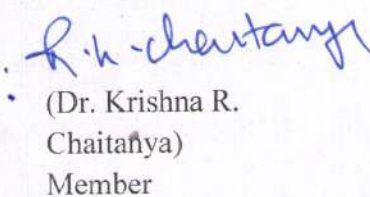 R.k-chaitanya
(Dr. Krishna R.
Chaitanya)
Member